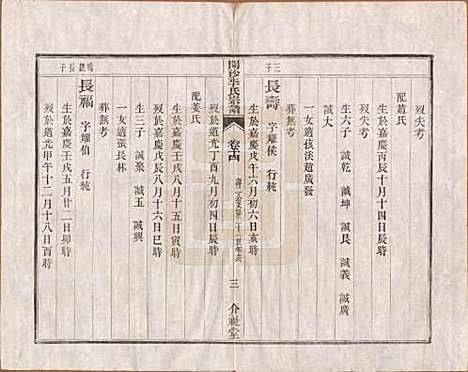 歿失考
配趙氏
生於嘉慶丙辰十月十四日辰時
歿失考
生六子 誠乾 誠坤 誠艮 誠義 誠廣
誠大
一女適孩溪趙廣發
葬無考
三子
長壽 字燿侯 行純
生於嘉慶戊午十六月初六日亥時
開沙李氏宗譜
卷古
三
介祉堂
歿於道光丁酉九月初四日辰時
配姜氏
生於嘉慶壬戌八月十五日寅時
歿於咸豐戊辰八月十六日巳時
生三子 誠衆 誠玉 誠興
一女適張長林
葬無考
長子
長福 字燿伯 行純
生於嘉慶壬戌五月廿二日卯時
歿於道光甲午十二月十八日酉時